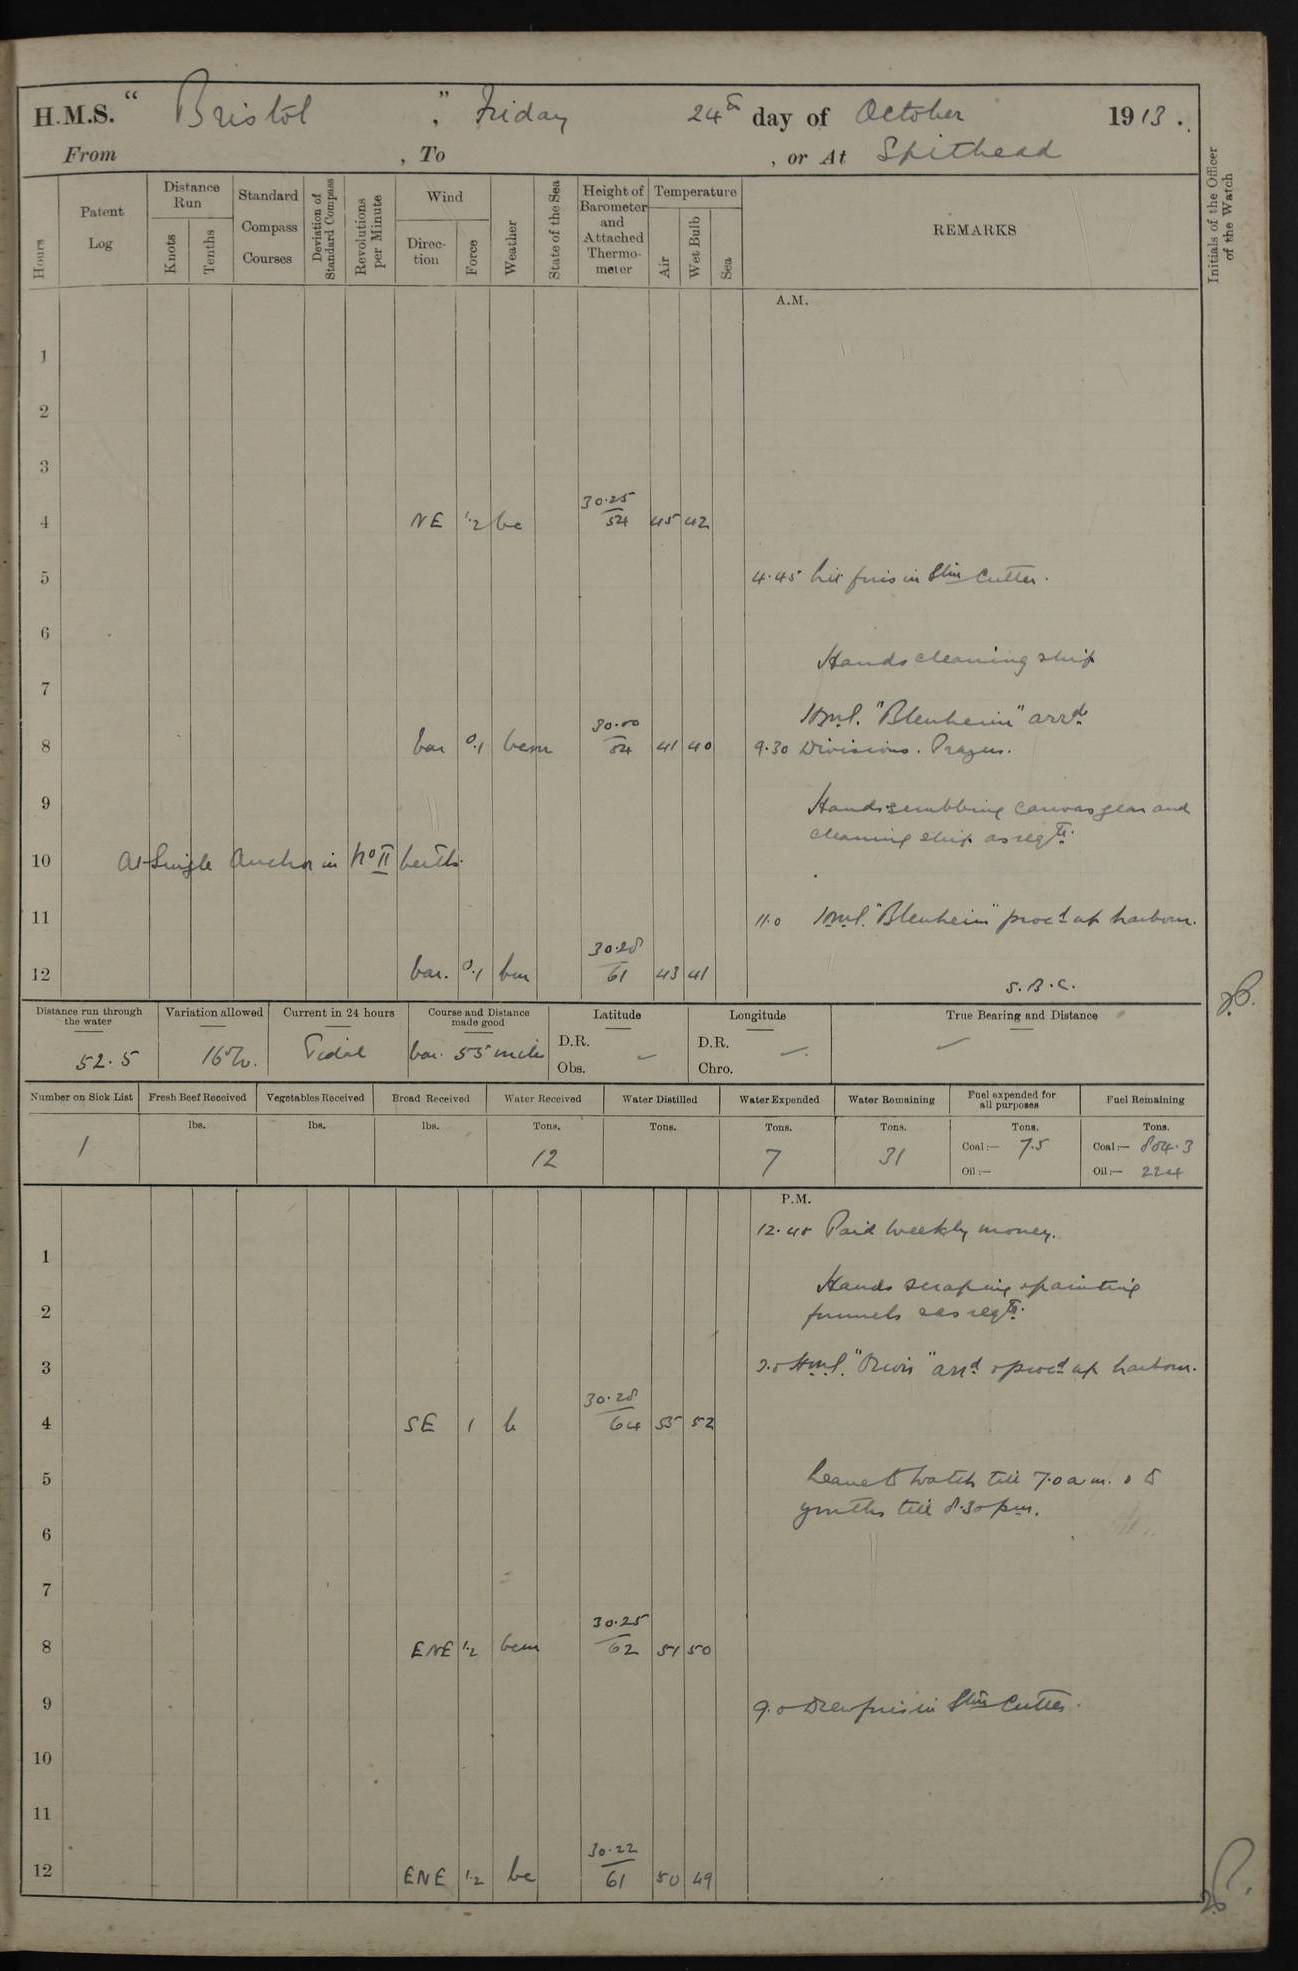 H.M.S. “ Bristol ”, Friday 24th day of October 1913.
From , To , or At Spithead
Hours
Patent Log
Distance Run
Knots
Tenths
Standard Compass Courses
Deviation of Standard Compass
Revolutions per Minute
Wind
Direc-tion
Force
Weather
State of the Sea
Height of Barometer and Attached Thermo-meter
Temperature
Air
Wet Bulb
Sea
REMARKS
Initials of the Officer of the Watch
A.M.
1
2
3
4 NE 1.2 bc 30.25/54 45 42
5 4.45 Lit fires in Stm Cutter.
6
Hands cleaning ship
7
H.M.S. "Blenheim" arrd.
8 var 0.1 bcm 30.00/54 41 40 9.30 Divisions. Prayers.
9 Hands scrubbing canvas gear and
cleaning ship as reqte.
10 At Single Anchor in No II berth.
11 11.0 H.M.S. "Blenheim" procd up harbour.
12 var. 0.1 bm 30.28/61 43 41
S.B.C.
Distance run through the water
Variation allowed
Current in 24 hours
Course and Distance made good
Latitude
Longitude
True Bearing and Distance
52.5 16°W. Tidal var. 55 miles D.R. D.R.
Obs. Chro.
Number on Sick List
Fresh Beef Received
Vegetables Received
Bread Received
Water Received
Water Distilled
Water Expended
Water Remaining
Fuel expended for all purposes
Fuel Remaining
lbs. lbs. lbs. Tons. Tons. Tons. Tons. Tons. Tons.
1 12 7 31 Coal:— 7.5 Coal:— 804.3
Oil:— Oil:— 224
P.M.
12.45 Paid weekly money.
1
Hands scraping & painting
2 funnels & as reqte.
3 H.M.S. arrd & procd up harbour.
4 SE 1 b 30.28/64 55 52
5 Leave to watch till 7.0 a.m. & to
youths till 8.30 pm.
6
7
8 ENE 1.2 bcm 30.25/62 51 50
9 9.0 Drew fires in Stm Cutter.
10
11
12 ENE 1.2 bc 30.22/61 50 49